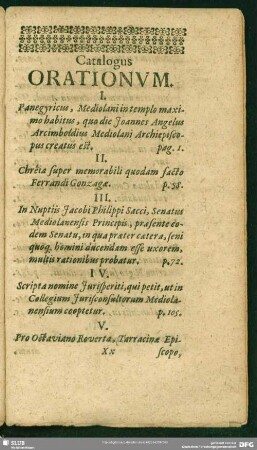 Catalogus
ORATIONVM.
I.
Panegyricus, Mediolani in templo maxi-
mo habitus, quo die Joannes Angelus
Arcimboldius Mediolani Archiepisco-
pus creatus est. pag. 1.
II.
Chreia super memorabili quodam facto
Ferrandi Gonzagæ. p. 38.
III.
In Nuptiis Jacobi Philippi Sacci, Senatus
Mediolanensis Principis, præsente eo-
dem Senatu, in qua præter cætera, seni
quoq; homini ducendam esse uxorem,
multis rationibus probatur. p. 72.
IV.
Scripta nomine Jurisperiti, qui petit, ut in
Collegium Jurisconsultorum Mediola-
nensium cooptetur. p. 105.
V.
Pro Octaviano Roverta, Tarracinæ Epi-
Xx scopo,
SLUB
DFG